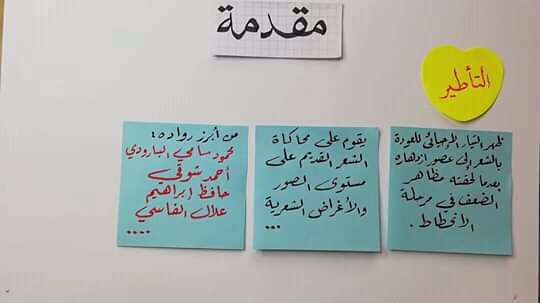 مقدمة
التأطير
ظهر التيار الإحيائي للعودة
بالشعر إلى عصور ازدهاره
بعدما لحقته مظاهر
الضعف في مرحلة
الانحطاط.
يقوم على محاكاة
الشعر القديم على
مستوى الصور
والأغراض الشعرية
...
من أبرز رواده:
محمود سامي البارودي
أحمد شوقي
حافظ إبراهيم
علال الفاسي
....